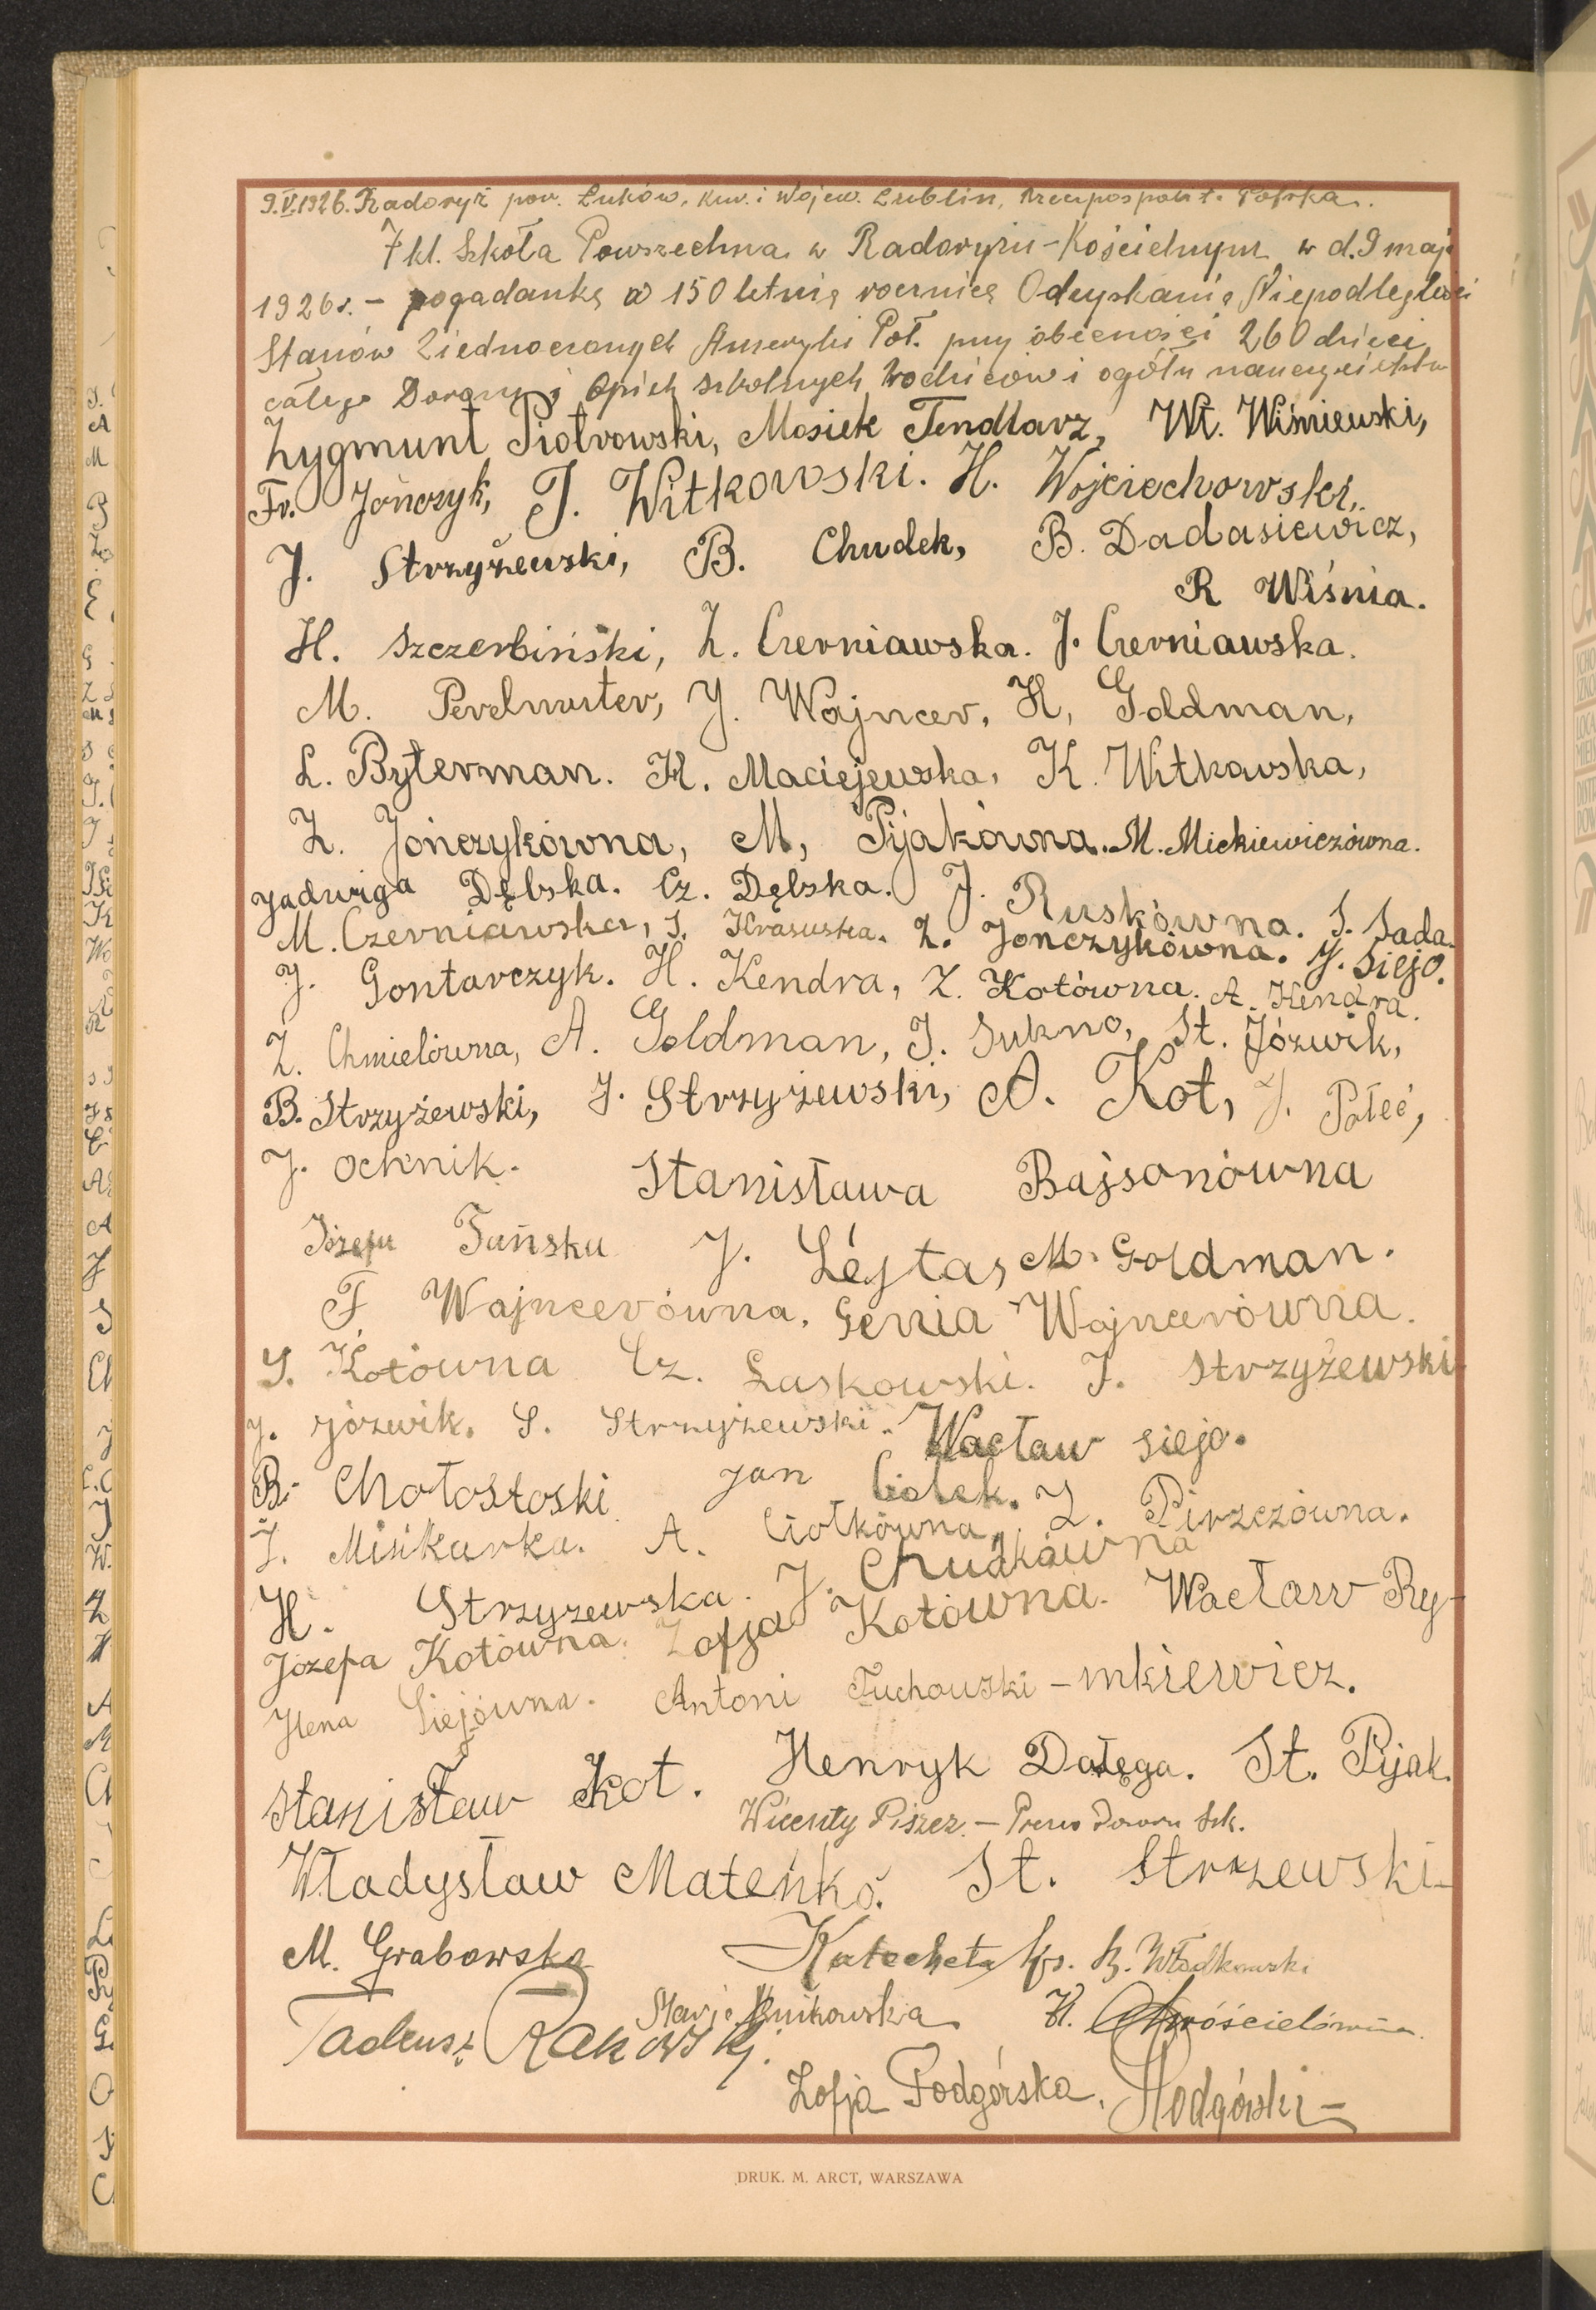 9.V.1926. Radoryż pow. Łuków, Kur. i Wojew. Lublin, Rzeczpospolit. Polska.
7 kl. Szkoła Powszechna w Radoryżu-Kościelnym w d. 9 maja
1926 r. - pogadanką w 150 letnią rocznicę Odzyskania Niepodległości
Stanów Ziednoczonych Ameryki Poł. przy obecności 260 dzieci,
całego Dozoru i Opiek szkolnych rodziców i ogółu nauczycielstwa
Zygmunt Piotrowski, Mosiek Tendlarz, Wł. Wiśniewski,
Fr. Jończyk, J. Witkowski. H. Wojciechowski,
J. Strzyżewski, B. Chudek, B. Dadasiewicz,
R Wiśnia.
H. Szczerbiński, Z. Czerniawska. J. Czerniawska.
M. Perelmuter, J. Wajncer, H, Goldman,
L. Byterman. H. Maciejewska, K. Witkowska,
Z. Jończykówna, M, Pijakówna. M. Mickiewiczówna.
Jadwiga Dębska. Cz. Dębska. J. Ruskówna. S. Sada.
M. Czerniawska, J. Krasuska. Z. Jończykówna. J. Siejo.
J. Gontarczyk. H. Kendra, Z. Kotówna. A. Kendra.
Z. Chmielówna, A. Goldman, J. Sukno, St. Józwik,
B. Strzyżewski, J. Strzyżewski, A. Kot, J. Połeć,
J. Ochnik. Stanisława Bajsonówna
Józefa Tuńska J. Lejtas, M. Goldman.
F Wajncerówna, Genia Wajncerówna.
S. Kotówna Cz. Laskowski. J. Strzyżewski
J. Józwik. S. Strzyżewski. Wacław Siejo.
B. Chołostoski Jan Ciołek. Z. Pirzczówna.
J. Misikurka. A. Ciołkówna,
H. Strzyzewska. J. Chudkówna
Józefa Kotówna. Zofja Kotówna. Wacław Ry-
Hena Siejówna. Antoni Tuchowski -mkiewicz.
Stanisław Kot. Henryk Dołęga. St. Pijak.
Wicenty Piszcz. - Prezes Dozoru Szk.
Władysław Mateńko. St. Strzewski
M. Grabowska Katecheta ks. B. Włodkowski
Marja Bnikowska H. Chróścielówna
Tadeusz Rakowski.
Zofja Podgórska, Podgórski
DRUK. M. ARCT, WARSZAWA